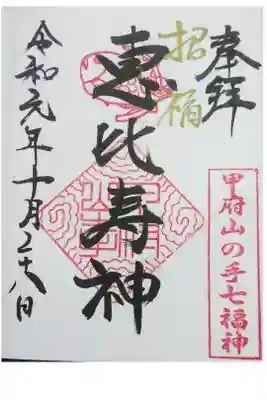 奉拝
招福
恵比寿神
令和元年十月二十八日
甲府山の手七福神